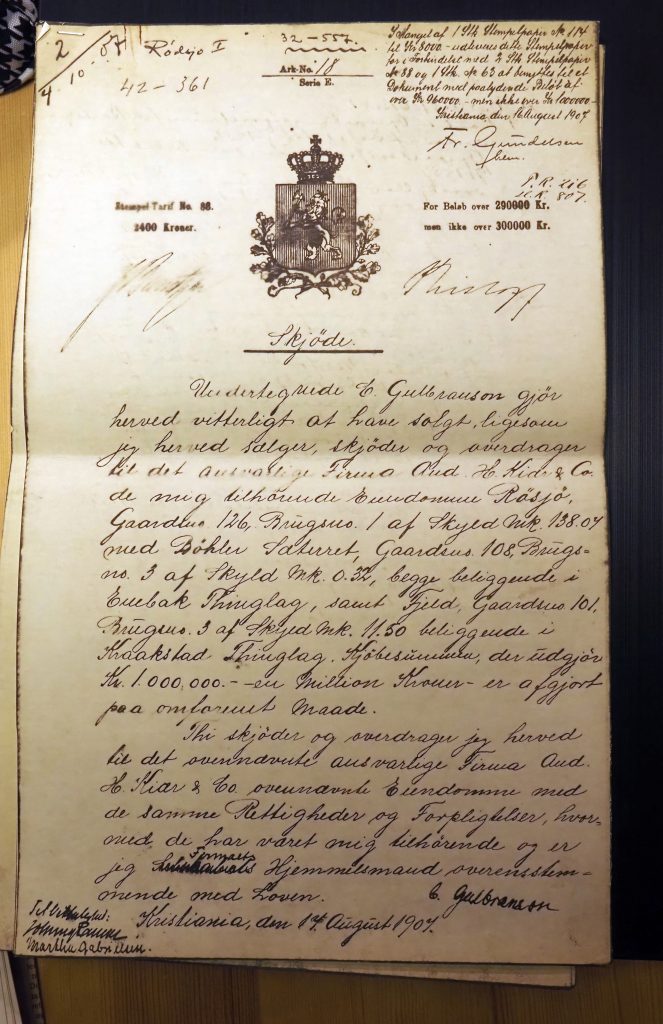 2 / 4 10 07
Rødsjø I
42 - 361
32 - 557.
Ark-No. 18
Serie E.
I Mangel af 1 Stk Stempelpapir No. 114
til Kr 8000.- udleveres dette Stempelpapir
for i Forbindelse med 2 Stk Stempelpapir
No 88 og 1 Stk. No 63 at benyttes til et
Dokument med paalydende Beløb af
over Kr 960000.- men ikke over Kr 1000000.-
Kristiania, den 16 August 1907.
Fr. Gundelsen
P. R. 216
807.
Stempel-Tarif No. 88.
2400 Kroner.
For Beløb over 290000 Kr.
men ikke over 300000 Kr.
Skjöde.
Undertegnede E. Gulbranson gjör
herved vitterligt at have solgt, ligesom
jeg herved sælger, skjöder og overdrager
til det ansvarlige Firma And. H. Kiær & Co.
de mig tilhörende Eiendomme Rösjö,
Gaardsno 126, Brugsno. 1 af Skyld Mk. 138.07
med Böhler Sæterret, Gaardsno. 108, Brugs-
no. 3 af Skyld Mk. 0.32, begge beliggende i
Enebak Thinglag, samt Fjeld, Gaardsno 101,
Brugsno. 3 af Skyld Mk. 11.50 beliggende i
Kraakstad Thinglag. Kjöbesummen, der udgjör
Kr. 1.000,000.- - en Million Kroner - er afgjort
paa omforenet Maade.
Thi skjöder og overdrager jeg herved
til det ovennævnte ansvarlige Firma And.
H. Kiær & Co ovennævnte Eiendomme med
de samme Rettigheder og Forpligtelser, hvor-
med de har været mig tilhörende og er
jeg Firmaets Hjemmelsmand overensstem-
mende med Loven.
E. Gulbranson
Kristiania, den 17 August 1907.
Til Vitterlighed:
Martha Gabrielsen.